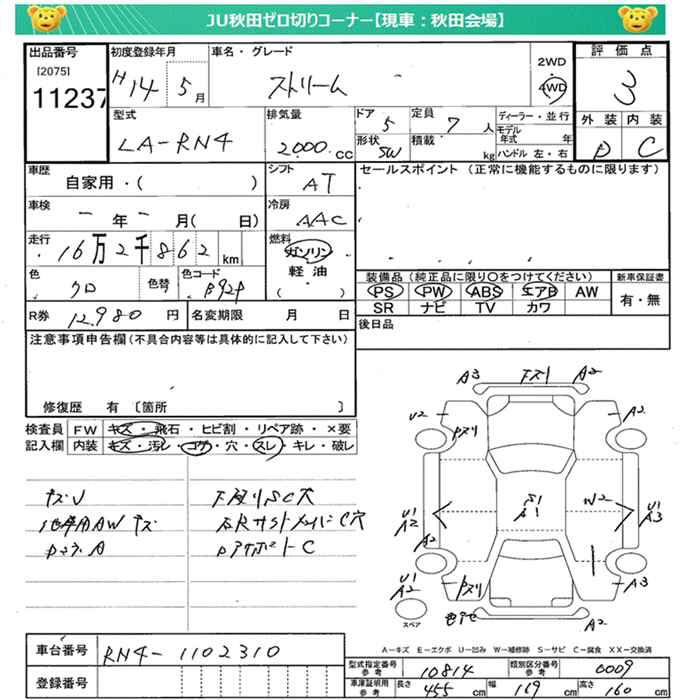 JU秋田ゼロ切りコーナー【現車：秋田会場】
出品番号
[2075]
11237
初度登録年月
H14 5月
車名・グレード
ストリーム
2WD
4WD
評価点
3
外装 内装
D C
型式
LA-RN4
排気量
2000 cc
ドア 5
形状 SW
定員 7 人
積載 kg
ディーラー・並行
モデル年式 年
ハンドル 左・右
車歴
自家用・( )
シフト
AT
セールスポイント (正常に機能するものに限ります)
車検
一年一月( 日)
冷房
AAC
走行
16万2千862 km
燃料
ガソリン
軽油
( )
色
クロ
色替
色コード
B92P
装備品 (純正品に限り〇をつけてください)
新車保証書
PS PW ABS エアB AW
有・無
SR ナビ TV カワ
R券 12,980 円
名変期限 月 日
後日品
注意事項申告欄(不具合内容等は具体的に記入して下さい)
修復歴 有 〔箇所 〕
検査員記入欄
FW キズ・飛石・ヒビ割・リペア跡・×要
内装 キズ・汚レ・コゲ・穴・スレ・キレ・破レ
A3 下スリ A2
U2 A2
Pスリ
U1 A2
S1 A1
W2
U1 A3
A2
U1 A2
Pスリ
A3
色アセ
A2
スペア
A-キズ E-エクボ U-凹み W-補修跡 S-サビ C-腐食 XX-交換済
車台番号
RN4-1102310
登録番号
型式指定番号 参考
10814
類別区分番号 参考
0009
車庫証明用 参考
長さ 455 cm
幅 169 cm
高さ 160 cm